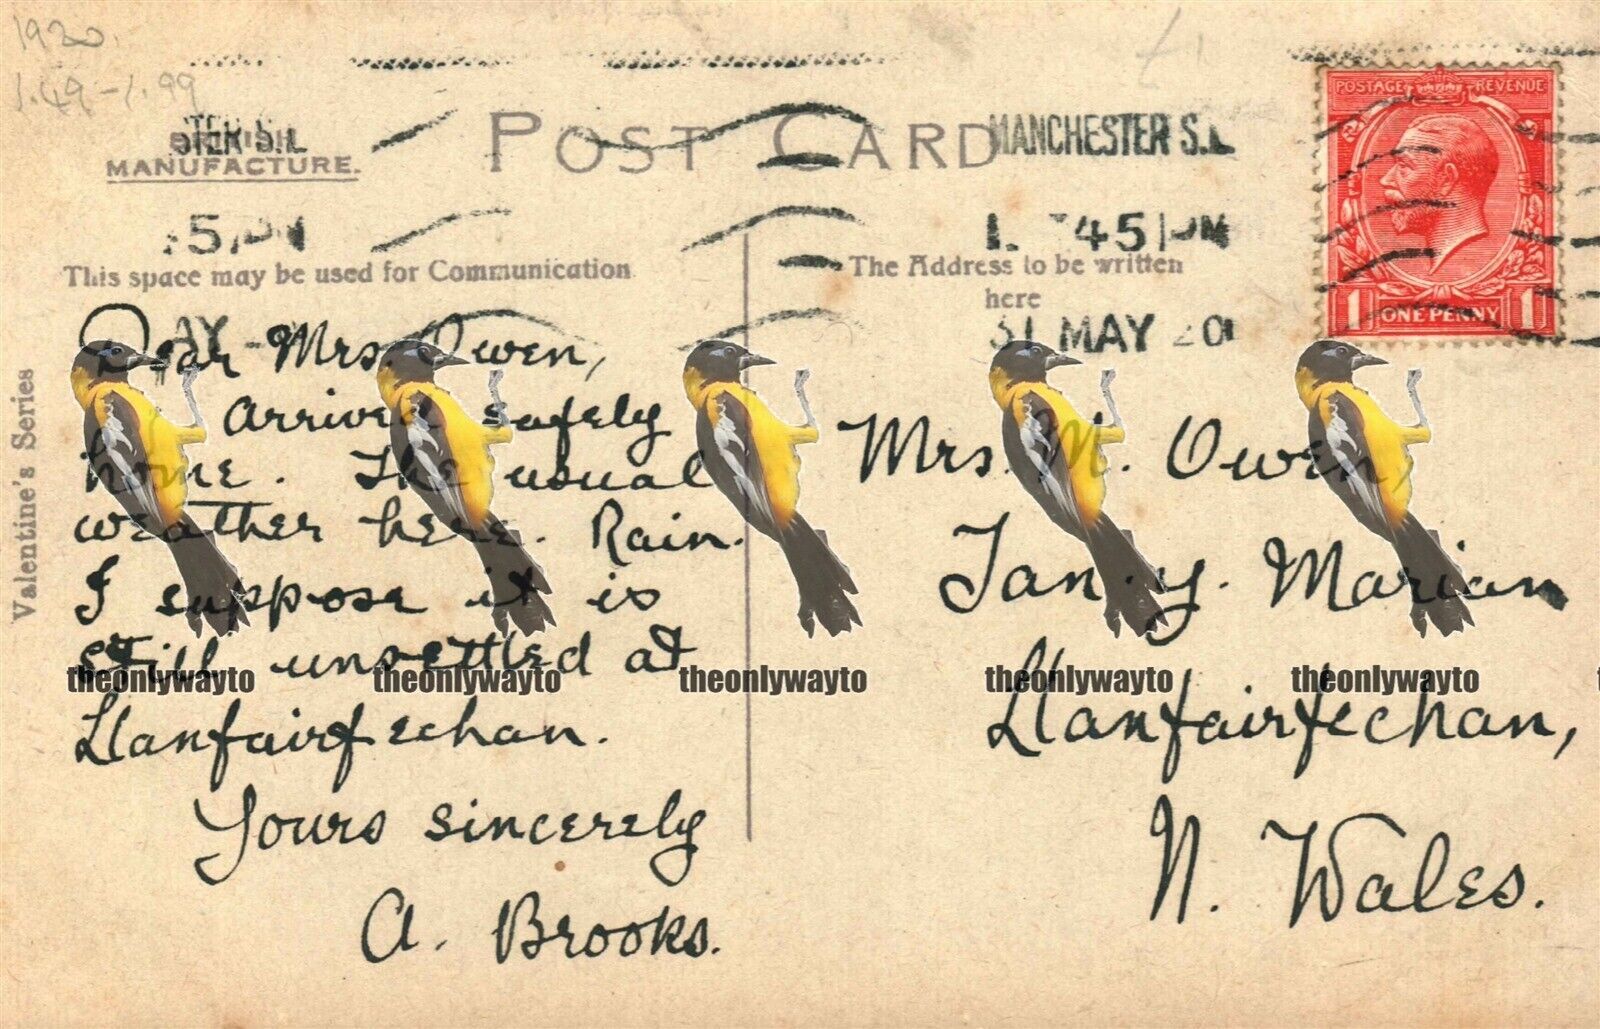 1920.
1.49-1.99
£1
POST CARD
BRITISH
MANUFACTURE.
STER S.L
MANCHESTER S.L
POSTAGE REVENUE
1 ONE PENNY 1
5 PM
45 PM
31 MAY 20
AY
This space may be used for Communication
The Address to be written
here
Valentine's Series
Dear Mrs. Owen,
Arrived safely
home. The usual
weather here. Rain.
I suppose it is
still unsettled at
Llanfairfechan.
Yours sincerely
A. Brooks.
Mrs. M. Owen,
Tan. y. Marian
Llanfairfechan,
N. Wales.
theonlywayto theonlywayto theonlywayto theonlywayto theonlywayto